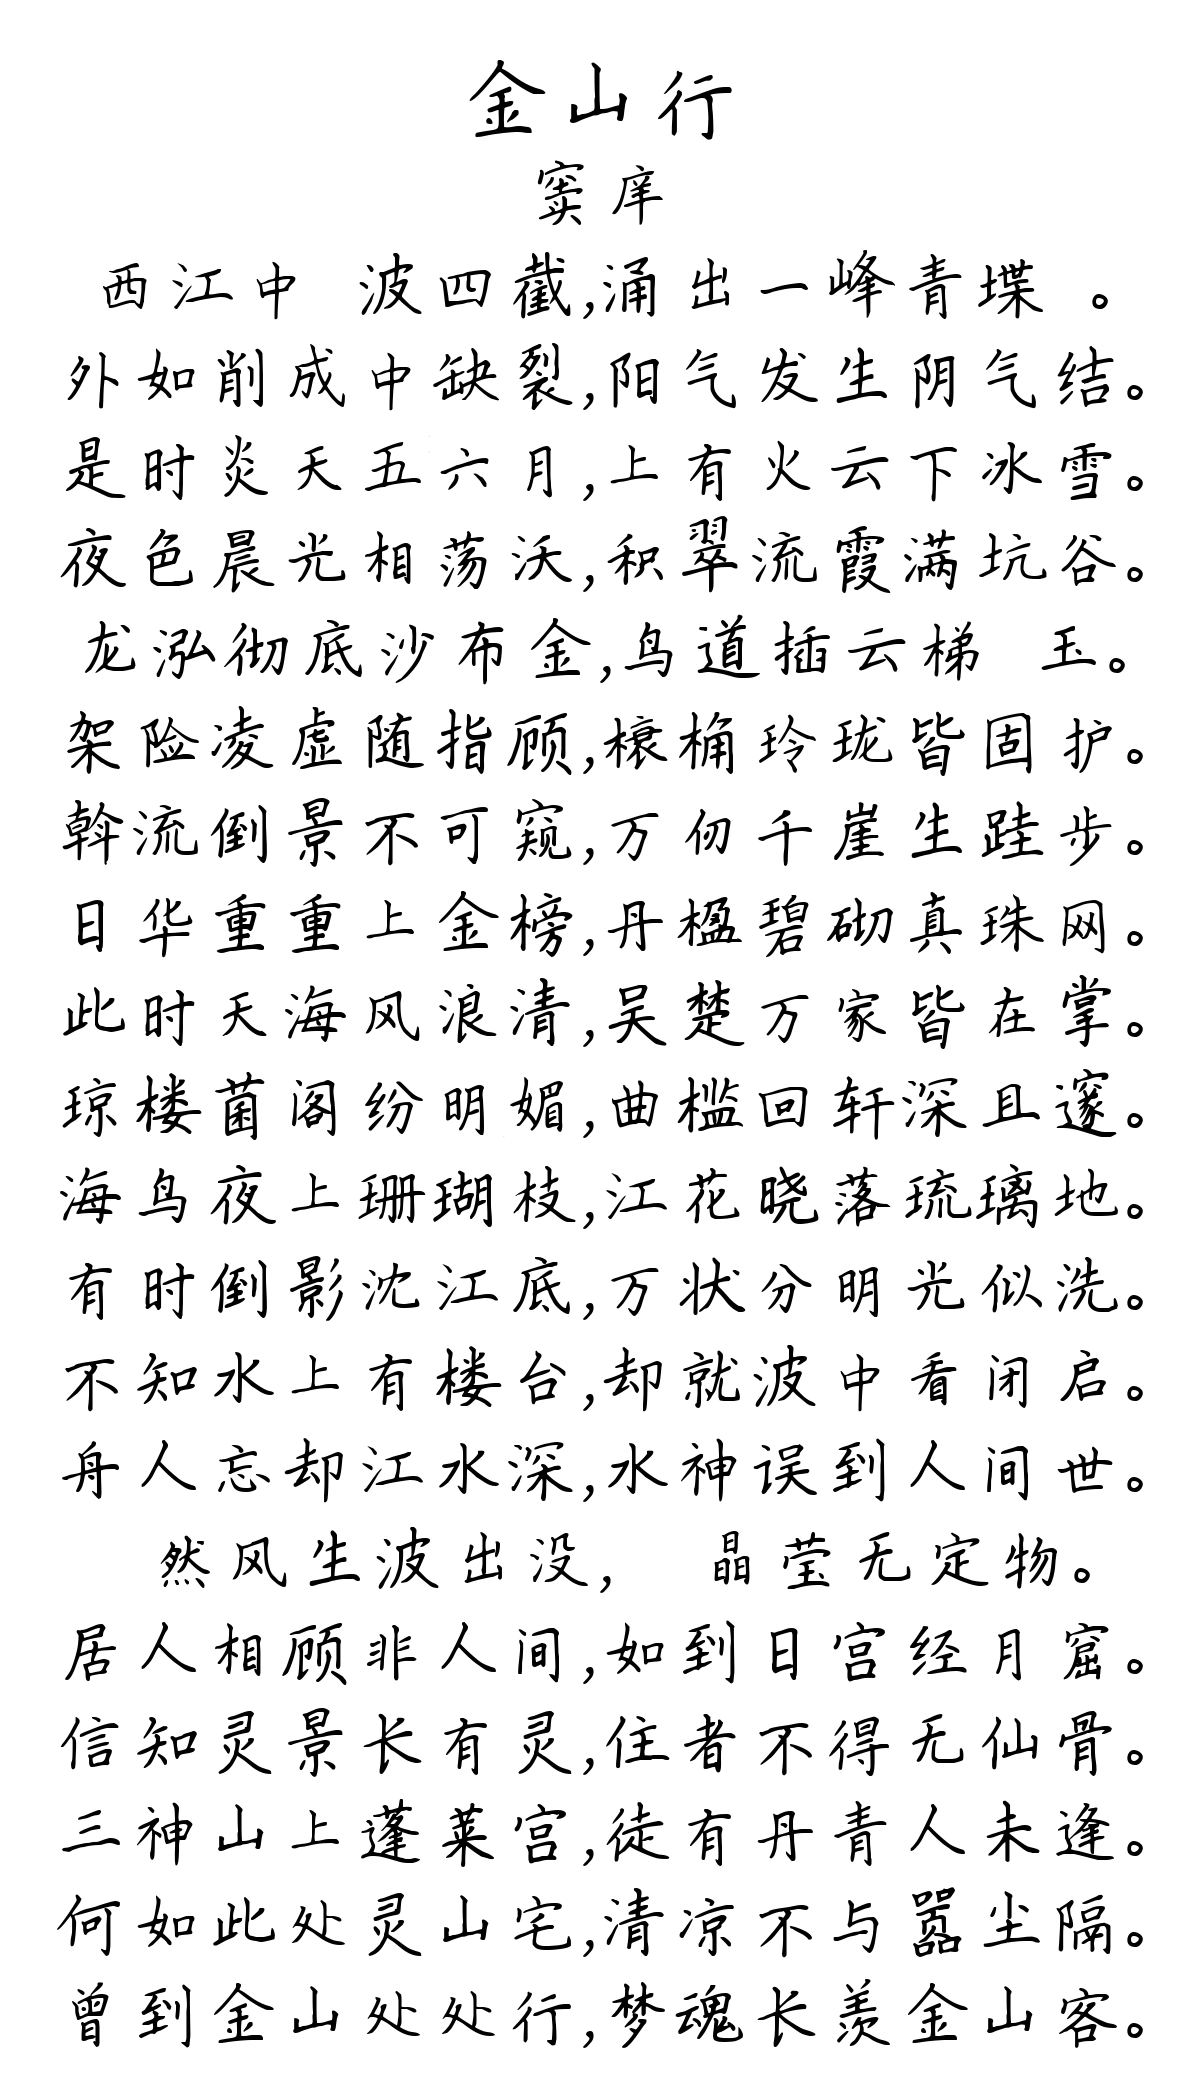 金山行
窦庠
西江中 波四截,涌出一峰青堞 。
外如削成中缺裂,阳气发生阴气结。
是时炎天五六月,上有火云下冰雪。
夜色晨光相荡沃,积翠流霞满坑谷。
龙泓彻底沙布金,鸟道插云梯 玉。
架险凌虚随指顾,榱桷玲珑皆固护。
斡流倒景不可窥,万仞千崖生跬步。
日华重重上金榜,丹楹碧砌真珠网。
此时天海风浪清,吴楚万家皆在掌。
琼楼菌阁纷明媚,曲槛回轩深且邃。
海鸟夜上珊瑚枝,江花晓落琉璃地。
有时倒影沈江底,万状分明光似洗。
不知水上有楼台,却就波中看闭启。
舟人忘却江水深,水神误到人间世。
然风生波出没, 晶莹无定物。
居人相顾非人间,如到日宫经月窟。
信知灵景长有灵,住者不得无仙骨。
三神山上蓬莱宫,徒有丹青人未逢。
何如此处灵山宅,清凉不与嚣尘隔。
曾到金山处处行,梦魂长羡金山客。